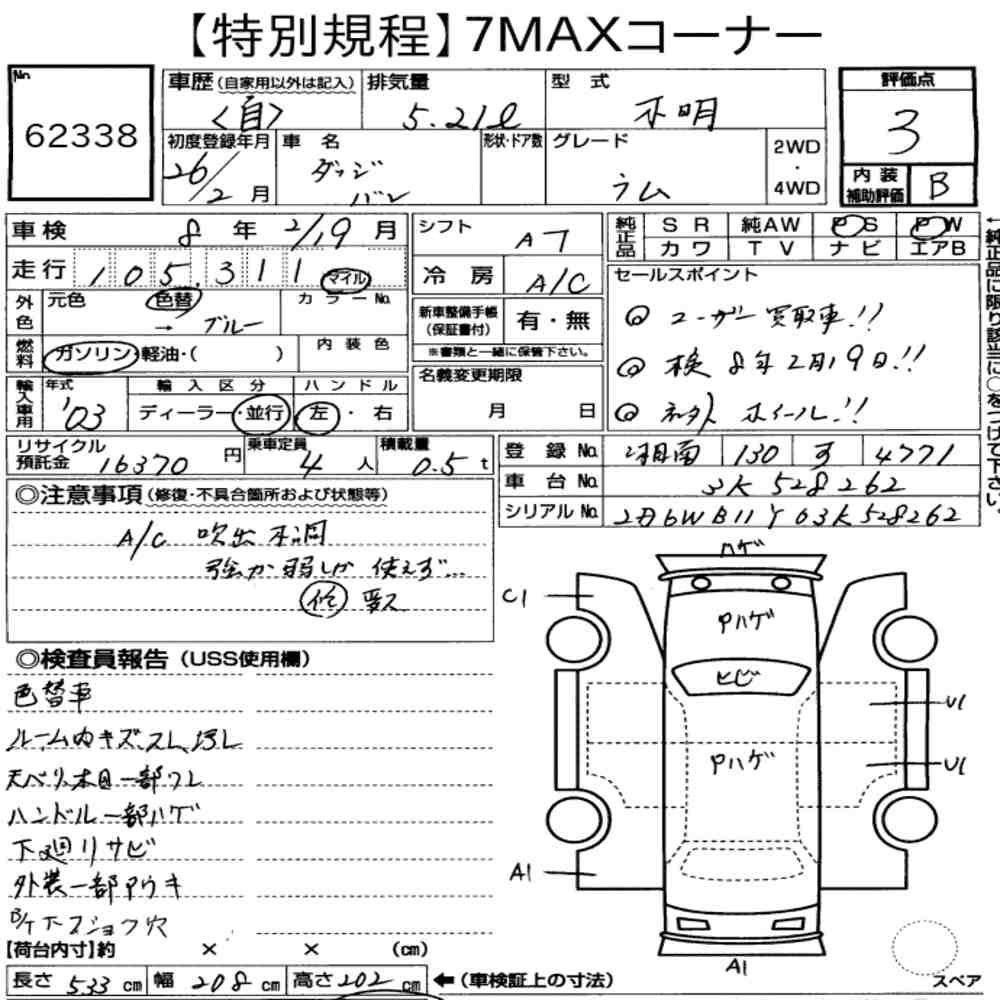 【特別規程】7MAXコーナー
No.
62338
車歴(自家用以外は記入)
<自>
排気量
5.21ℓ
型式
不明
評価点
3
初度登録年月
26/2月
車名
ダッジ
バン
形状・ドア数
グレード
ラム
2WD
・
4WD
内装
補助評価
B
車検
8年2/19月
シフト
AT
純正品
SR
純AW
PS
PW
カワ
TV
ナビ
エアB
走行
105,311
マイル
冷房
A/C
セールスポイント
◎ユーザー買取車!!
◎検8年2月19日!!
◎社外ホイール!!
外色
元色
色替
カラーNo.
→ブルー
新車整備手帳
(保証書付)
有・無
※書類と一緒に保管下さい。
燃料
ガソリン・軽油・( )
内装色
名義変更期限
月 日
輸入車用
年式
'03
輸入区分
ディーラー・並行
ハンドル
左・右
←純正品に限り該当に○をつけて下さい。
リサイクル
預託金
16370円
乗車定員
4人
積載量
0.5t
登録No.
湘南 130 す 4771
車台No.
3K528262
シリアルNo.
2B6WB11Y03K528262
◎注意事項(修復・不具合箇所および状態等)
A/C 吹出不調
強か弱しか使えず…
◎検査員報告(USS使用欄)
色替車
ルーム内キズ、スレ、汚レ
天ベリ、木目一部ワレ
ハンドル一部ハゲ
下廻リサビ
外装一部Pウキ
ハゲ
C1
Pハゲ
ヒビ
U1
Pハゲ
U1
A1
A1
スペア
【荷台内寸】約 × × (cm)
長さ 533cm 幅 208cm 高さ 202cm ←(車検証上の寸法)